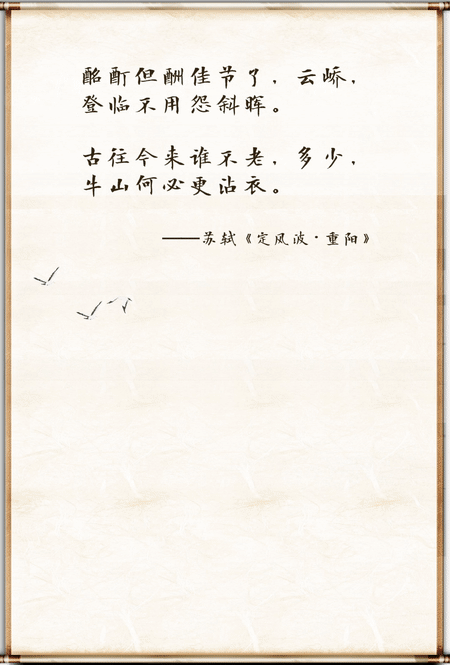 酩酊但酬佳节了，云峤，
登临不用怨斜晖。
古往今来谁不老，多少，
牛山何必更沾衣。
——苏轼《定风波·重阳》